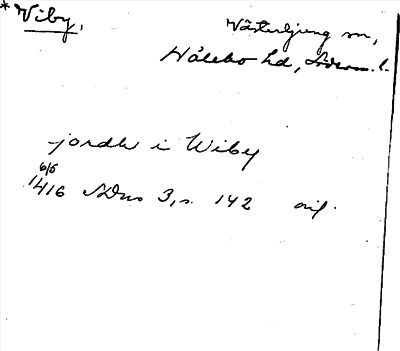 *Viby,
Västerljung sn,
Hölebo hd, Söderm. l.
jordh i Wiby
6/5
1416 SDns 3, s. 142 orig.